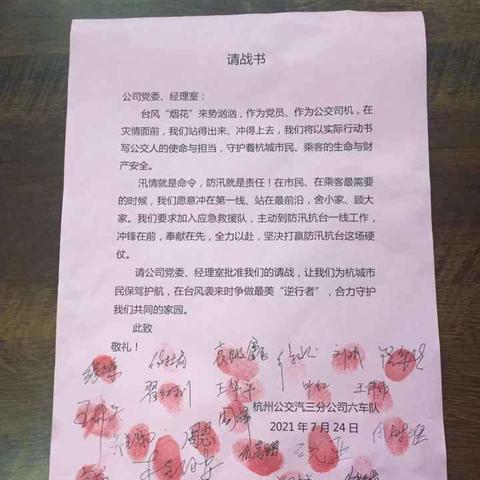 请战书
公司党委、经理室：
台风“烟花”来势汹汹，作为党员、作为公交司机，在
灾情面前，我们站得出来、冲得上去，我们将以实际行动书
写公交人的使命与担当，守护着杭城市民、乘客的生命与财
产安全。
汛情就是命令，防汛就是责任！在市民、在乘客最需要
的时候，我们愿意冲在第一线、站在最前沿，舍小家、顾大
家。我们要求加入应急救援队，主动到防汛抗台一线工作，
冲锋在前，奉献在先，全力以赴，坚决打赢防汛抗台这场硬
仗。
请公司党委、经理室批准我们的请战，让我们为杭城市
民保驾护航，在台风袭来时争做最美“逆行者”，合力守护
我们共同的家园。
此致
敬礼！
杭州公交汽三分公司六车队
2021 年 7 月 24 日